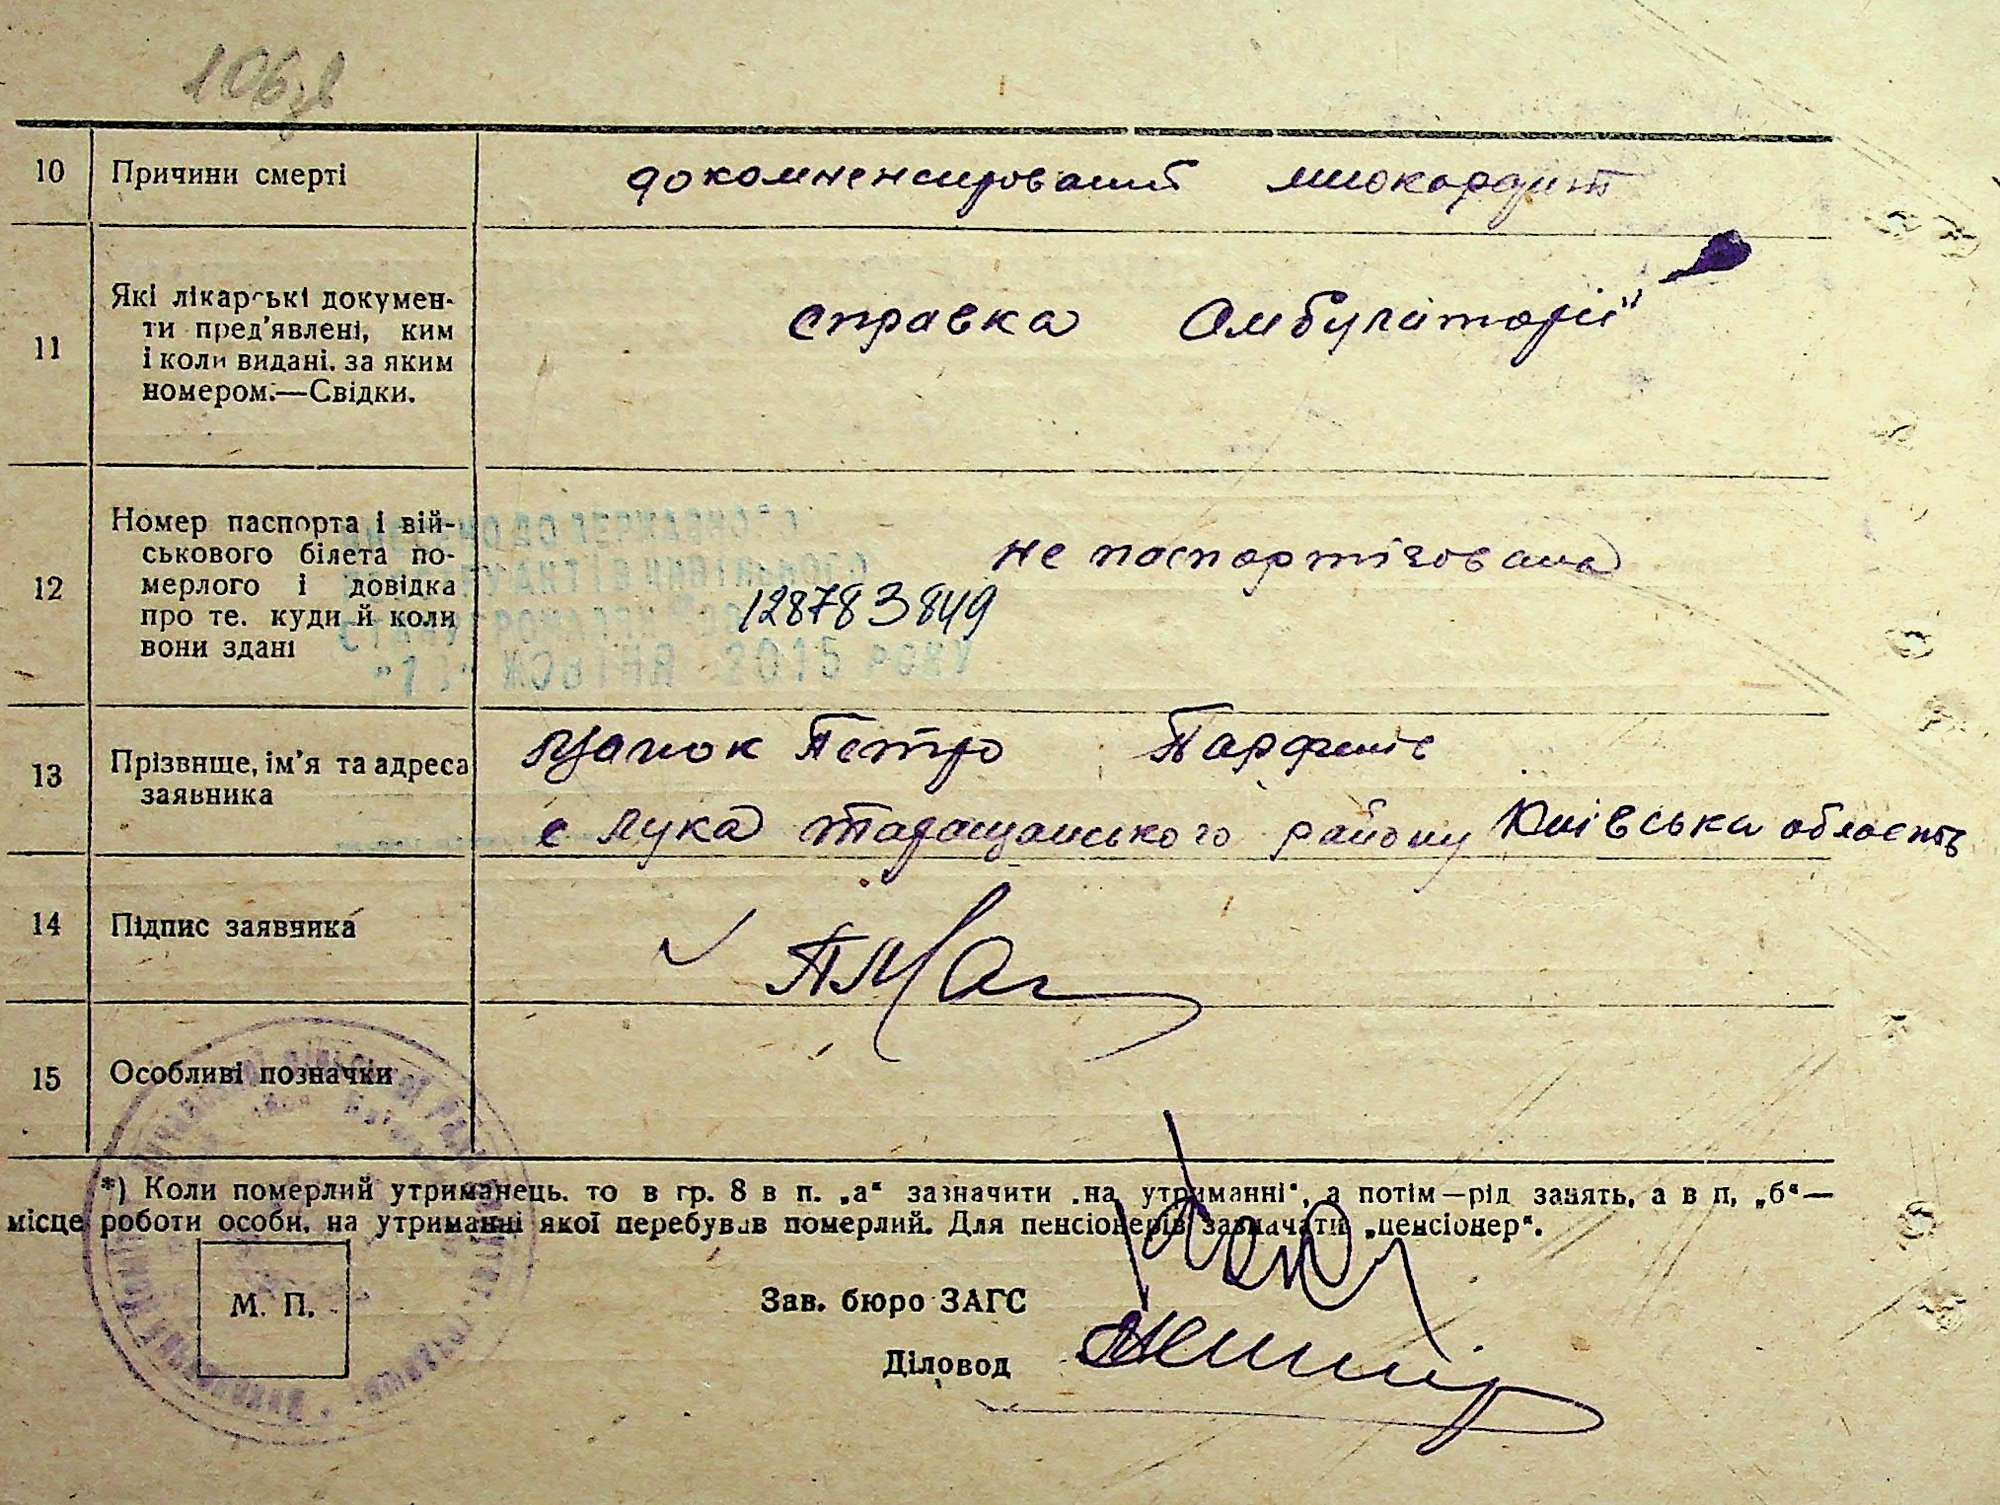 106
10 Причини смерті докомпенсирований миокардит
11 Які лікарські докумен-
ти пред'явлені, ким
і коли видані. за яким
номером.—Свідки.
справка Амбулаторії
12 Номер паспорта і вій-
ськового білета по-
мерлого і довідка
про те. куди й коли
вони здані
не паспортізована
12878 3849
ДО ДЕРЖАВНОГО
АКТІВ ЦИВІЛЬНОГО
СТАНУ ГРОМАДЯН
ЖОВТНЯ 2015 РОКУ
13 Прізвище, ім'я та адреса
заявника
Петро Парфеніє
с Лука таращанського району Київська область
14 Підпис заявника
15 Особливі позначки
*) Коли померлий утриманець. то в гр. 8 в п. „а“ зазначити „на утриманні“, а потім—рід занять, а в п, „б“—
місце роботи особи. на утриманні якої перебував померлий. Для пенсіонерів зазначати „пенсіонер“.
М. П.
Зав. бюро ЗАГС
Діловод